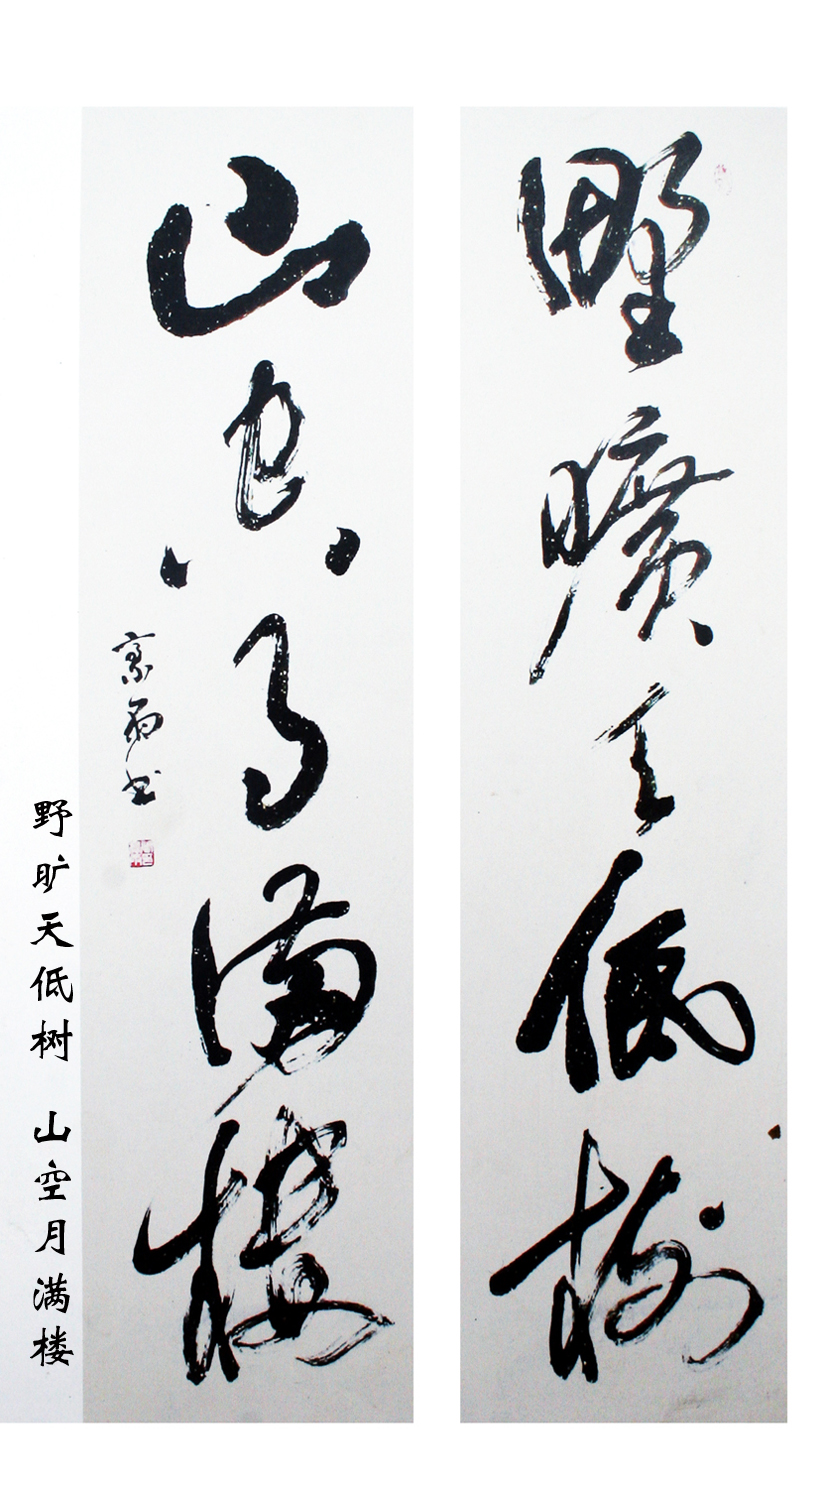 野曠天低樹
山空月滿樓
野旷天低树 山空月满楼